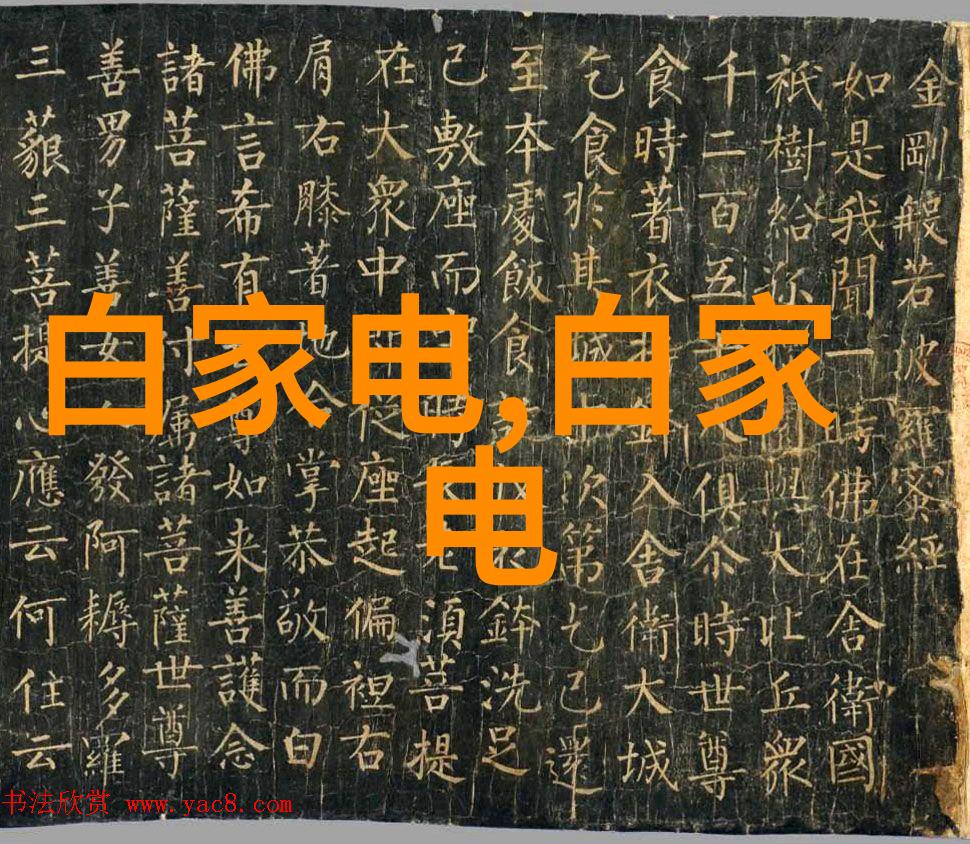 金剛般若波羅蜜經
如是我聞一時佛在舍衛國
祇樹給園與大比丘衆
千二百五十人俱尒時世尊
食時著衣持入舍衛大城
乞食於其城中次第乞已還
至本處飯食衣鉢洗足
已敷座而時須菩提
在大衆中從座起偏袒右
肩右膝著地合掌恭敬而白
佛言希有尊如来善護念
諸菩薩善付属諸菩薩世尊
善男子善女人發阿耨多羅
三藐三菩提心應云何住云
白家电,白家
电
书法欣赏 www.yac8.com